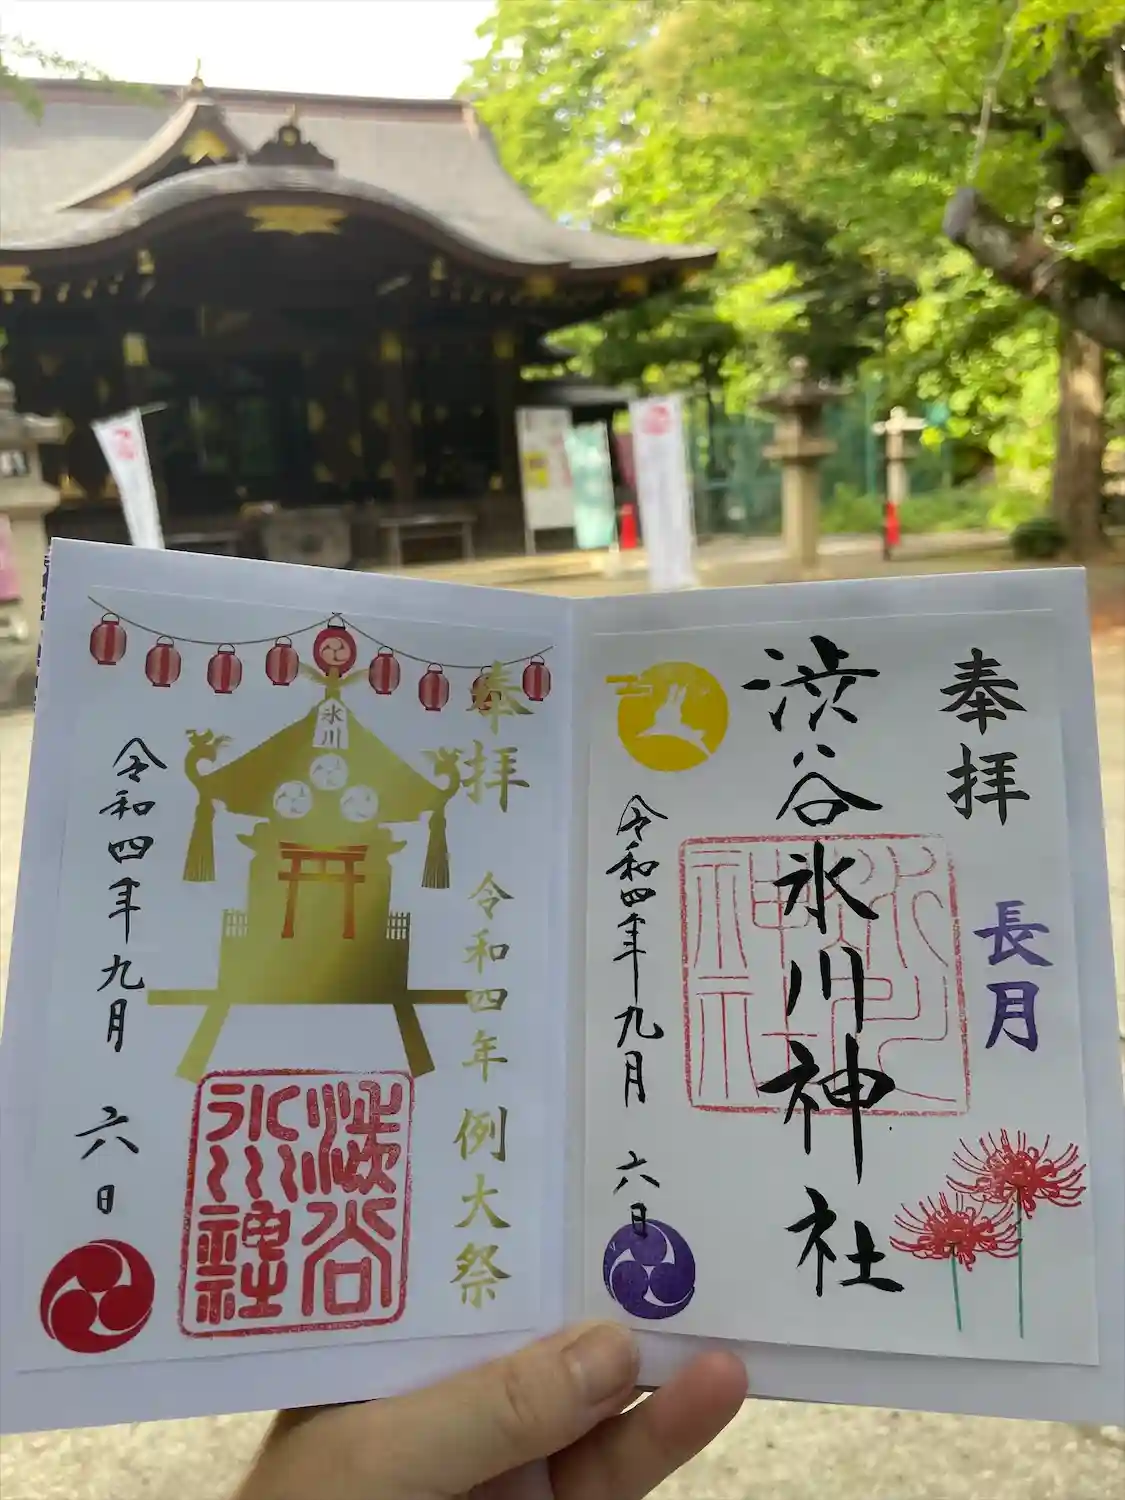 奉拝
長月
渋谷氷川神社
令和四年九月六日
奉拝
令和四年 例大祭
氷川
令和四年九月 六日
渋谷
氷川
神社